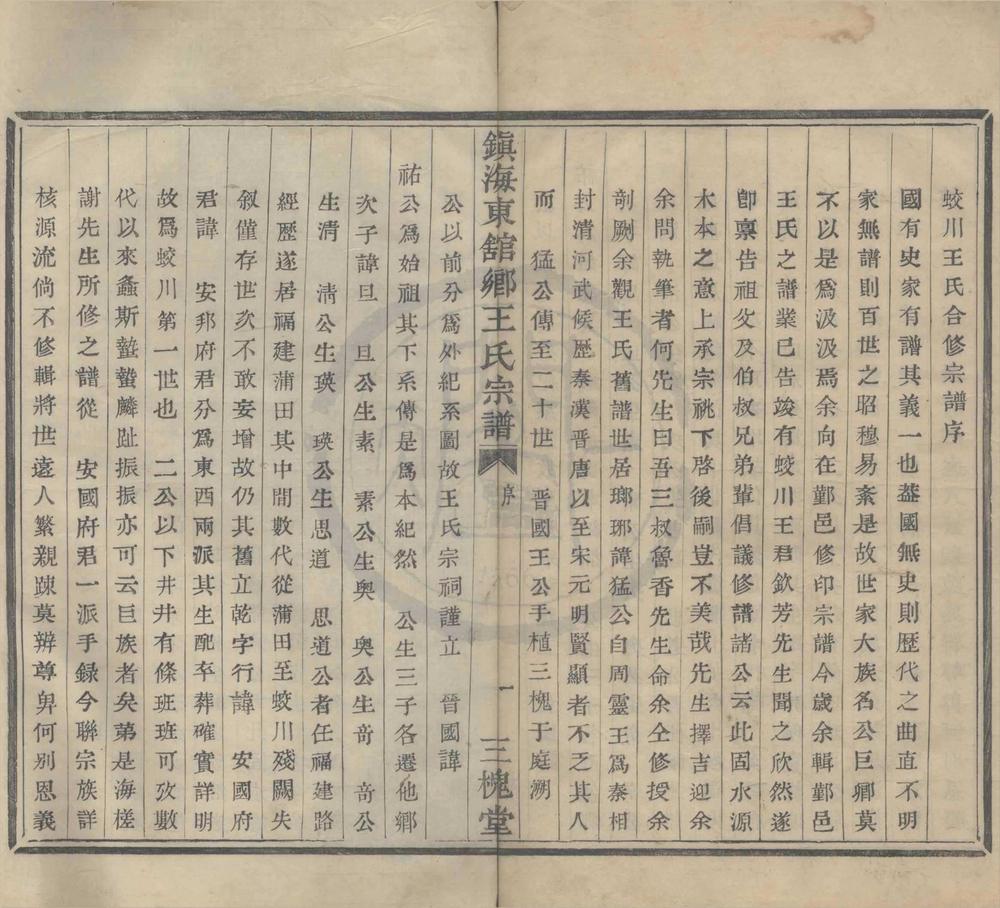 蛟川王氏合修宗譜序
國有史家有譜其義一也葢國無史則歷代之曲直不明
家無譜則百世之昭穆易紊是故世家大族名公巨卿莫
不以是爲汲汲焉余向在鄞邑修印宗譜今歲余輯鄞邑
王氏之譜業已告竣有蛟川王君欽芳先生聞之欣然遂
卽稟告祖父及伯叔兄弟輩倡議修譜諸公云此固水源
木本之意上承宗祧下啓後嗣豈不美哉先生擇吉迎余
余問執筆者何先生曰吾三叔魯香先生命余仝修授余
剞劂余觀王氏舊譜世居瑯琊諱猛公自周靈王爲秦相
封清河武侯歷秦漢晋唐以至宋元明賢顯者不乏其人
而　猛公傳至二十世　晋國王公手植三槐于庭溯
鎮海東舘鄉王氏宗譜　序　一　三槐堂
公以前分爲外紀系圖故王氏宗祠謹立　晉國諱
祐公爲始祖其下系傳是爲本紀然　公生三子各遷他鄉
次子諱旦　旦公生素　素公生奥　奥公生竒　竒公
生淸　淸公生瑛　瑛公生思道　思道公者任福建路
經歷遂居福建蒲田其中間數代從蒲田至蛟川殘闕失
叙僅存世次不敢妄增故仍其舊立乾字行諱　安國府
君諱　安邦府君分爲東西兩派其生配卒葬確實詳明
故爲蛟川第一世也　二公以下井井有條班班可攷數
代以來螽斯蟄蟄麟趾振振亦可云巨族者矣第是海槎
謝先生所修之譜從　安國府君一派手録今聯宗族詳
核源流倘不修輯將世遠人繁親疎莫辨尊卑何别恩義